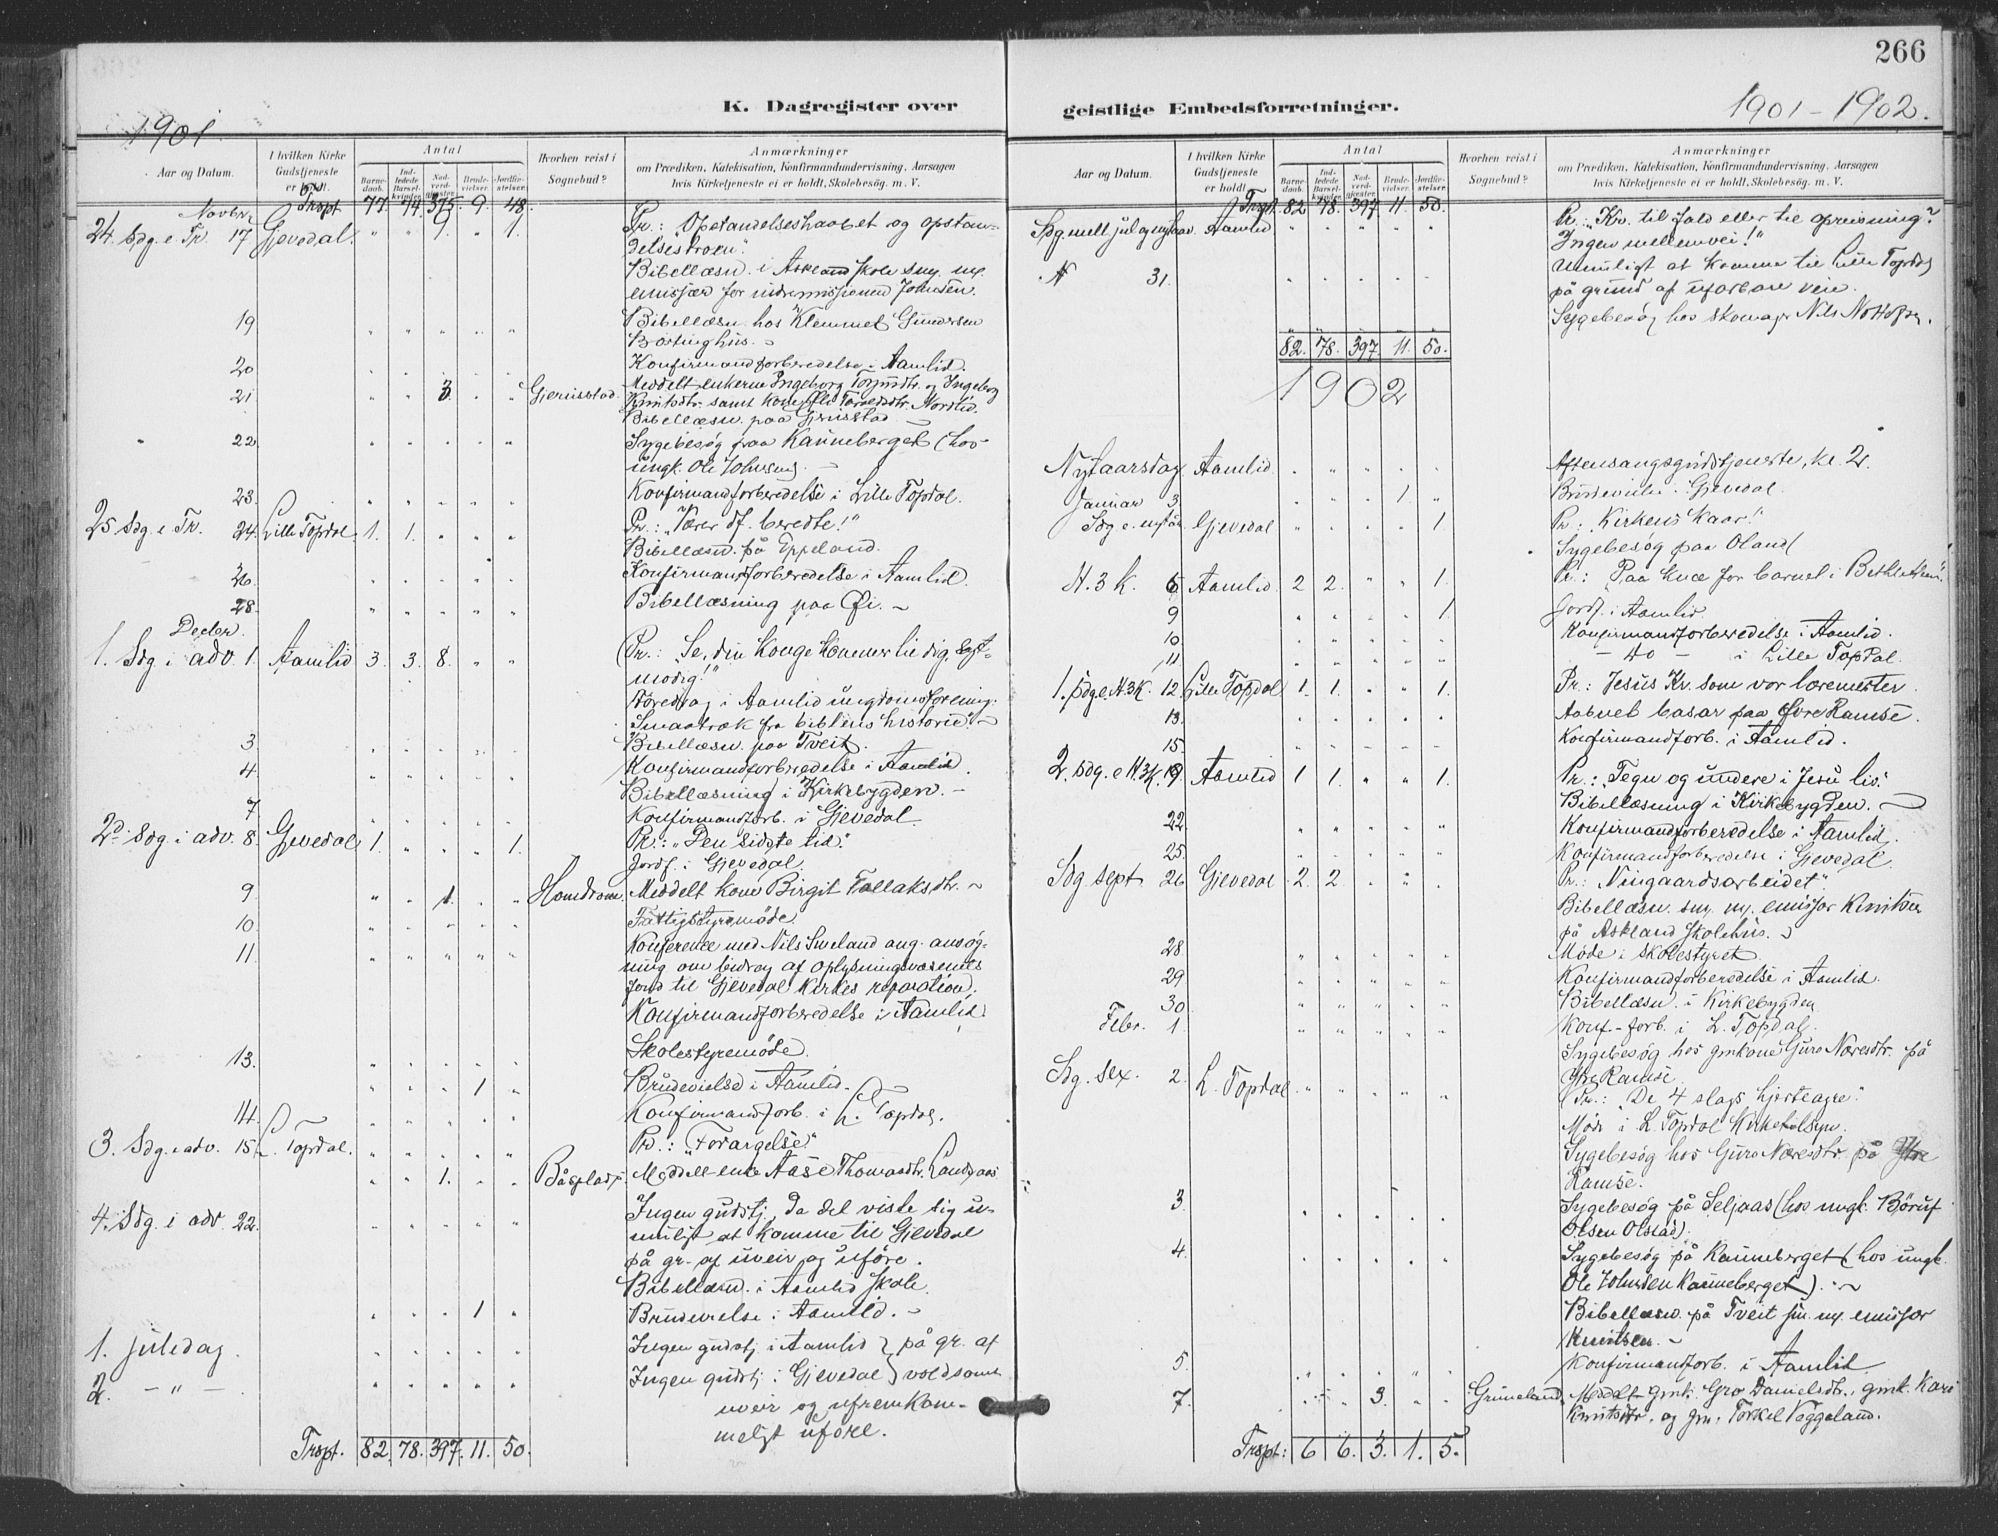 266
K. Dagregister over
geistlige Embedsforretninger.
1901
1901 - 1902.
Aar og Datum.
I hvilken Kirke Gudstjeneste er holdt.
Antal
Barnedaab.
Indledede Barselkvinder.
Nadverdgjæster.
Brudevielser.
Jordfæstelser.
Hvorhen reist i Sognebud?
Anmærkninger
om Prædiken, Katekisation, Konfirmandundervisning, Aarsagen
hvis Kirketjeneste ei er holdt, Skolebesøg. m. V.
Trspt 77. 74. 375. 9. 48.
Novbr.
24. Sdg. e. Tr. 17 Gjevedal. " " 9. " 1. Pr.: "Opstandelseshaabet og opstan-
delsestroen".
Bibellæsn. i Askland Skole sm. m.
emissær for indremissionen Johnsen.
19 Bibellæsn. hos Klemmet Gundersen
20 Konfirmandforberedelse i Aamlid.
21 " " 3. " " Gjeruisstad. Meddelt enkerne Ingeborg og Ingeborg
Knutsdtr. samt kone
Bibellæsn. paa
" 22 Sygebesøg paa Kauneberget (hos
ungk. Ole Johnsens. -
23. Konfirmandforberedelse i Lille Topdal.
25 Sdg. e. Tr. 24. Lille Topdal. 1. 1. " " " Pr.: "Værer og beredte!"
Bibellæsn. på Eppeland.
26. Konfirmandforberedelse i Aamlid.
28. Bibellæsning paa Øi. -
Decbr.
1. Sdg i adv. 1. Aamlid 3. 3. 8. " " Pr.: "Se, din Konge kommer til dig, sagt-
modig!"
Foredrag i Aamlid ungdomsforening:
Smaatræk fra bibelens historie". -
3 Bibellæsn. paa Tveit.
4. Konfirmandforberedelse i Aamlid.
Bibellæsning i Kirkebygden. -
7 Konfirmandforb. i Gjevedal
2den Sdg. i adv. 8. Gjevedal 1. " " " 1. Pr.: "Den sidste tid".
Jordf. i Gjevedal
9 " " 1. " " Meddelt kone Birgit Tallaksdtr. -
10. Fattigstyremøde.
11. Konference med Nils Sweland ang. ansøg-
ning om bidrag af oplysningsvæsenets
fond til Gjevedal kirkes reparation.
Konfirmandforberedelse i Aamlid.
13. Skolestyremøde.
" " " 1 " Brudevielse i Aamlid.
14. Konfirmandforb. i L. Topdal.
3. Sdg. i adv. 15 L. Topdal. Pr.: "Forargelse".
" " 1. " " Meddelt enke Aase Thomasdtr.
4. Sdg. i adv. 22. Ingen gudstj. da det viste sig u-
muligt at komme til Gjevedal
på gr. af uveir og uføre.
Bibellæsn. i Aamlid Skole.
" " " 1 " Brudevielse i Aamlid. -
1. juledag. Ingen gudstj. i Aamlid } på gr. af
2. - " - Ingen gudstj. i Gjevedal } voldsomt
uveir og ufremkom-
meligt uføre.
Trspt. 82. 78. 397. 11. 50.
Aar og Datum.
I hvilken Kirke Gudstjeneste er holdt
Antal
Barnedaab.
Indledede Barselkvinder.
Nadverdgjæster.
Brudevielser.
Jordfæstelser.
Hvorhen reist i Sognebud?
Anmærkninger
om Prædiken, Katekisation, Konfirmandundervisning, Aarsagen
hvis Kirketjeneste ei er holdt, Skolebesøg. m. V.
Trspt. 82 78. 397 11. 50.
Sdg. mell jul og nytaar. Aamlid Pr.: "Kr. til fald eller til opreisning?
Ingen mellemvei!"
Umuligt at komme til Lille Topdal
31. på grund af ufarbare veie.
Sygebesøg hos skomager Nils
82. 78. 397. 11. 50.
1902
Nytaarsdag Aamlid. Aftensangsgudstjeneste, kl. 2.
Januar 3. " " " 1. " Brudevielse i Gjevedal.
Sdg e. nytår Gjevedal " " " " 1. Pr: "Kirkens Kaar!"
Sygebesøg paa Oland
H. 3 K. 6 Aamlid. 2 2. " " 1. Pr.: "Paa knæ for barnet i Bethlehem".
9 1. Jordf. i Aamlid.
10 Konfirmandforberedelse i Aamlid.
11. - do - i Lille Topdal.
1. Sdg. e. H3K. 12. Lille Topdal 1. 1. " " 1. Pr: Jesus Kr. som vor læremester
13. Aabnet basar paa Øvre Ramse.
15. Konfirmandforb. i Aamlid.
2. Sdg. e. H.3K. 19. Aamlid 1 1. " " 1. Pr: "Tegn og undere i Jesu liv".
Bibellæsning i Kirkebygden. -
22 Konfirmandforberedelse i Aamlid.
25. Konfirmandforberedelse i Gjevedal
Sdg sept. 26 Gjevedal 2. 2. Pr.: "Vingaardsarbeidet".
Bibellæsn. sm. m. emissær Knutsen
på Askland Skolehus. -
28 Møde i skolestyret.
29 Konfirmandforberedelse i Aamlid.
30 Bibellæsn. i Kirkebygden
Febr. 1. Konf-forb. i L. Topdal.
Sygebesøg hos gmkone Guro Næresdtr. på
Ytre Ramse.
Sdg. sex. 2. L. Topdal Pr.: "De 4 slags hjerteagre."
Møde i L. Topdal Kirketilsyn.
Sygebesøg hos Guro Næresdtr. på Ytre
Ramse.
3. Sygebesøg på Seljaas (hos ungk. Børuf
Olsen Olstad).
4. Sygebesøg på Kauneberget (hos ungk.
Ole Johnsen Kauneberget). -
Bibellæsn. på Tveit sm. m. emissær
Knutsen. -
5. Konfirmandforb. i Aamlid
7. " " 3. " " Meddelt gmk. Gro Danielsdtr., gmk. Kari
Knutsdtr. og gm. Torkel Veggeland.
Trspt: 6 6. 3. 1. 5.